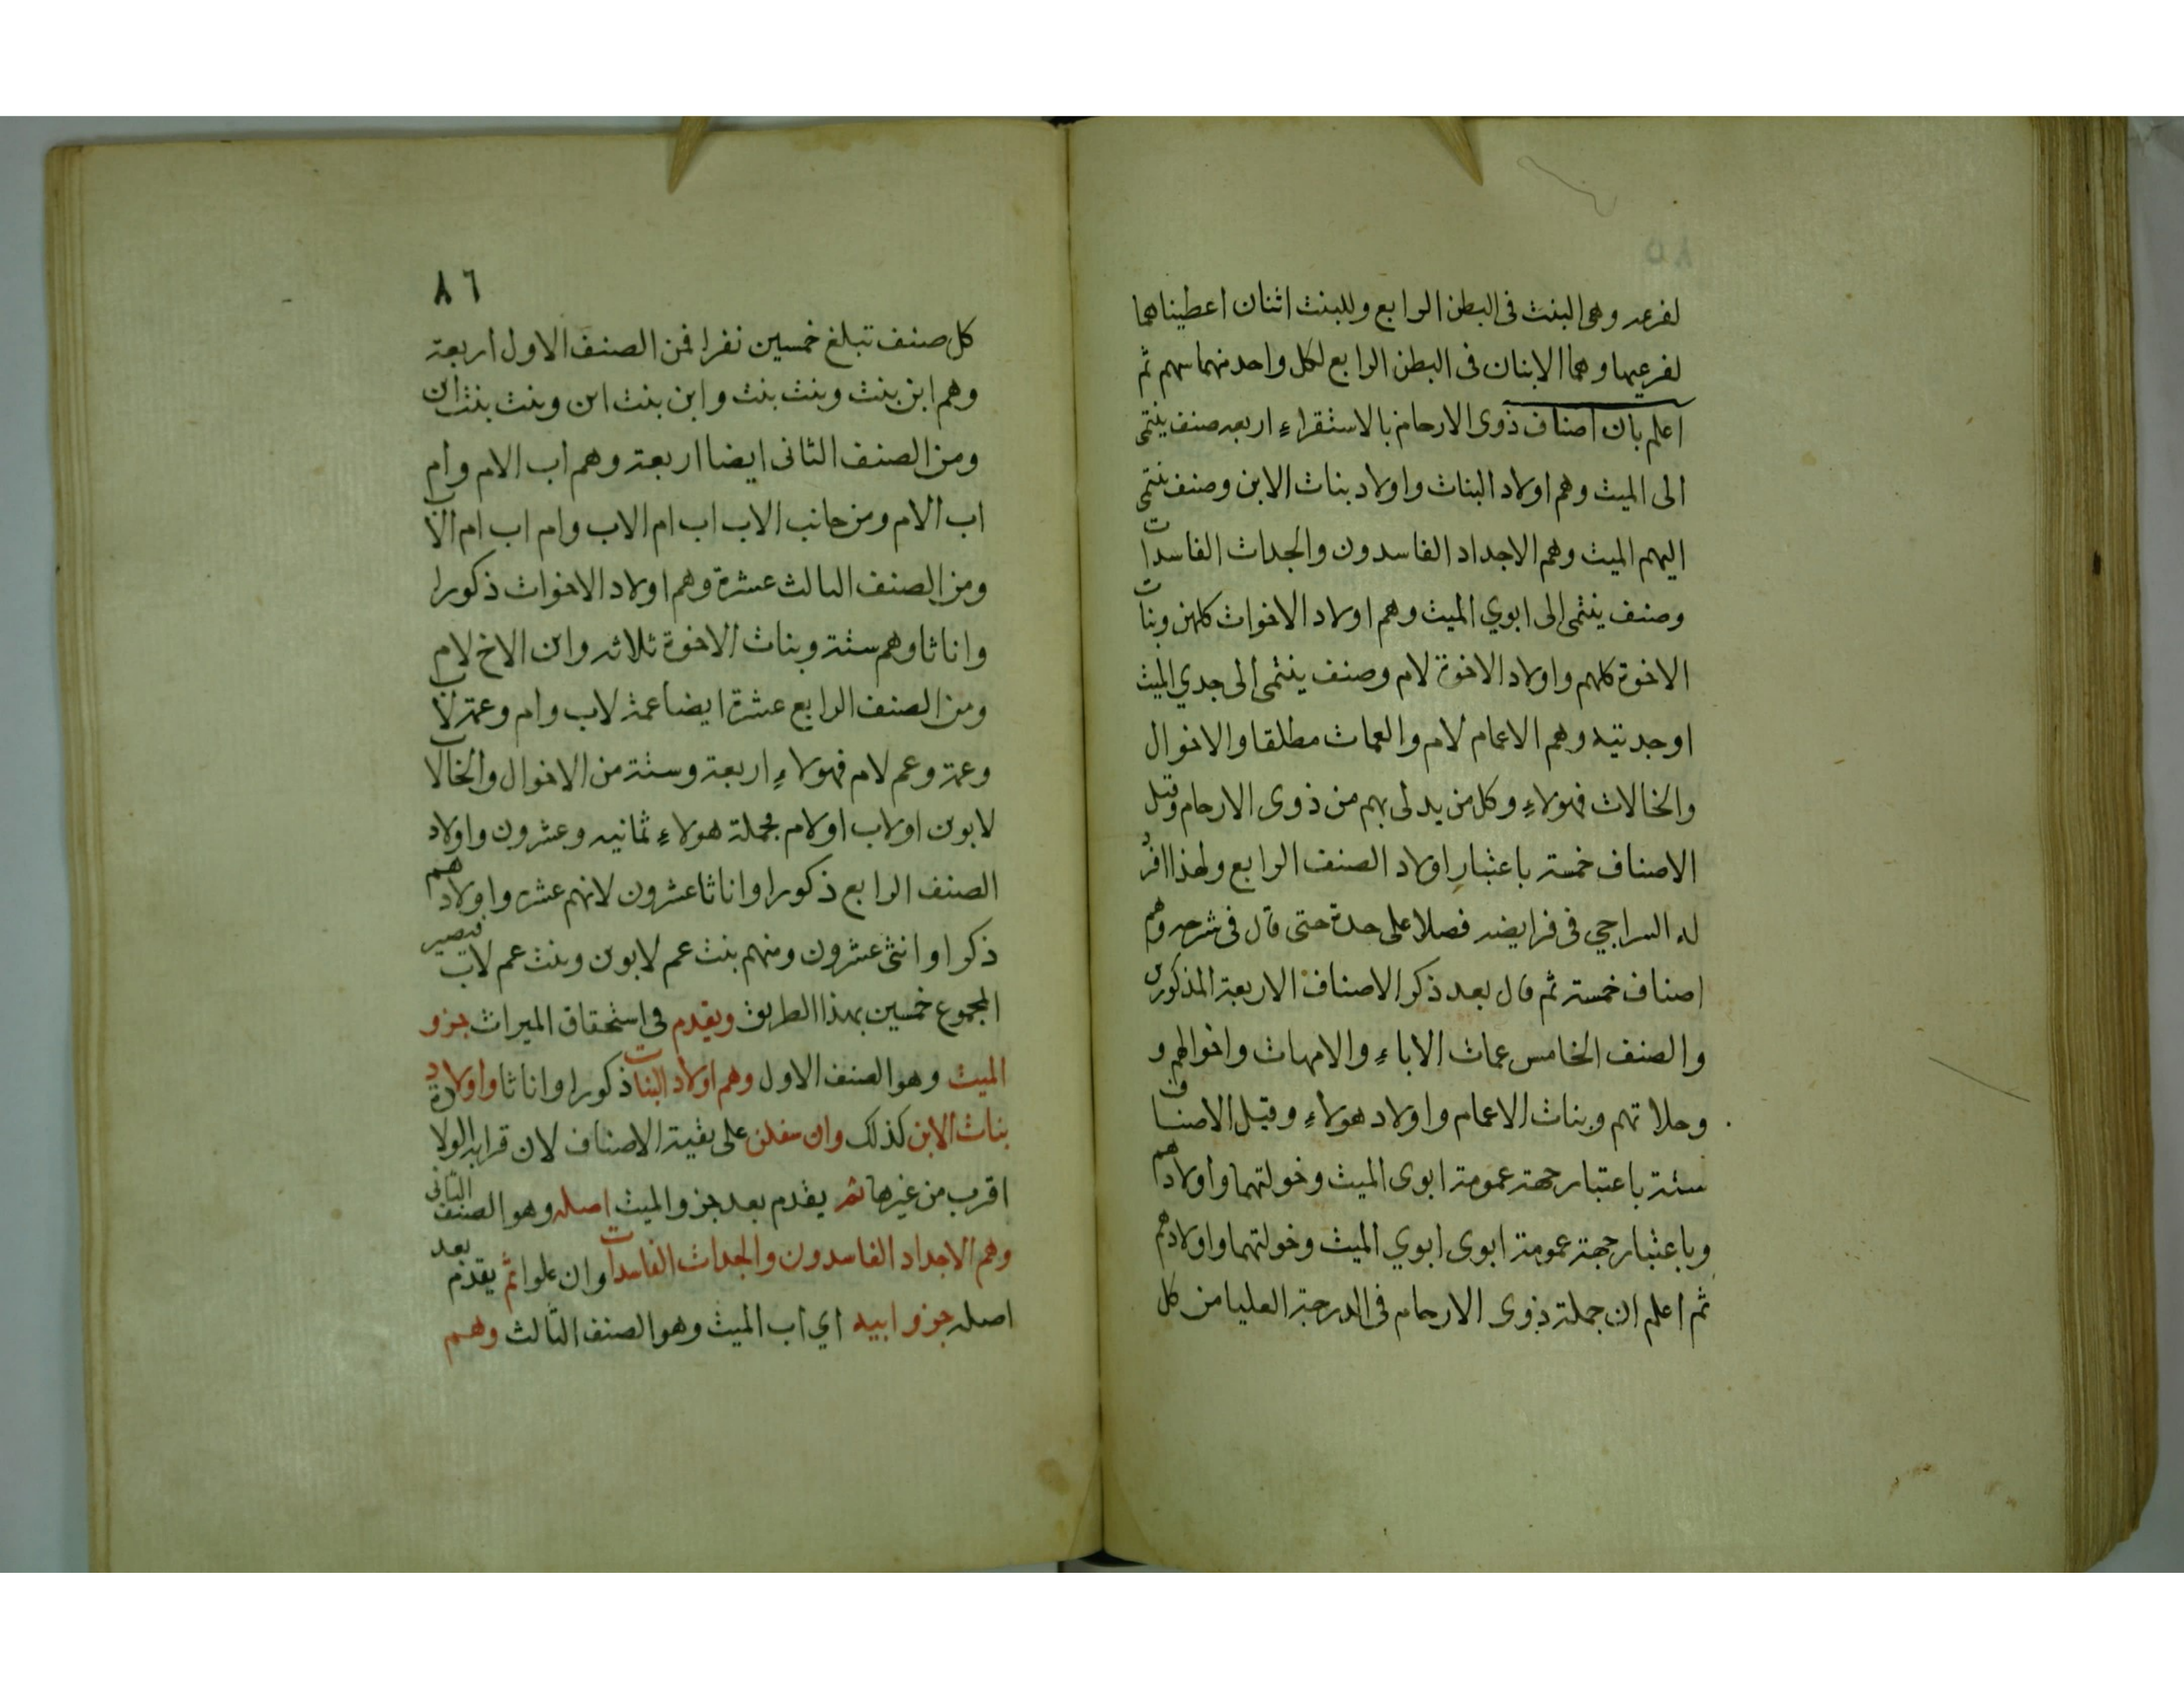 لفرعه وهى البنت فى البطن الرابع وللبنت اثنان اعطيناهما
لفرعيها وهما الابنان فى البطن الرابع لكل واحد منهما سهم ثم
اعلم بان اصناف ذوى الارحام بالاستقراء اربعه صنف ينتمى
الى الميت وهم اولاد البنات واولاد بنات الابن وصنف ينتمى
اليهم الميت وهم الاجداد الفاسدون والجدات الفاسدات
وصنف ينتمى الى ابوي الميت وهم اولاد الاخوات كلهن وبنات
الاخوة كلهم واولاد الاخوة لام وصنف ينتمى الى جدي الميت
او جدتيه وهم الاعمام لام والعمات مطلقا والاخوال
والخالات فهولاء وكل من يدلى بهم من ذوى الارحام وقيل
الاصناف خمسة باعتبار اولاد الصنف الرابع ولهذا افرد
له السراجي فى فرايضه فصلا على حدة حتى قال فى شرحه وهم
اصناف خمسة ثم قال بعد ذكر الاصناف الاربعة المذكورين
والصنف الخامس عمات الاباء والامهات واخوالهم و
وحلاتهم وبنات الاعمام واولاد هولاء وقيل الاصناف
ستة باعتبار جهة عمومة ابوى الميت وخولتهما واولادهم
وباعتبار جهة عمومة ابوى ابوي الميت وخولتهما واولادهم
ثم اعلم ان جملة ذوى الارحام فى الدرجة العليا من كل
٨٦
كل صنف تبلغ خمسين نفرا فمن الصنف الاول اربعة
وهم ابن بنت وبنت بنت وابن بنت ابن وبنت بنت ابن
ومن الصنف الثانى ايضا اربعة وهم اب الام وام
اب الام ومن جانب الاب اب ام الاب وام اب ام الاب
ومن الصنف الثالث عشرة وهم اولاد الاخوات ذكورا
واناثا وهم ستة وبنات الاخوة ثلاثه وابن الاخ لام
ومن الصنف الرابع عشرة ايضا عمة لاب وام وعمة لاب
وعمة وعم لام فهولاء اربعة وستة من الاخوال والخالات
لابوين او لاب او لام فجملة هولاء ثمانيه وعشرون واولاد
الصنف الرابع ذكورا واناثا عشرون لانهم عشره واولادهم
ذكرا وانثى عشرون ومنهم بنت عم لابوين وبنت عم لاب فيصير
المجموع خمسين بهذا الطريق ويقدم فى استحقاق الميراث جزو
الميت وهو الصنف الاول وهم اولاد البنات ذكورا واناثا واولاد
بنات الابن كذلك وان سفلن على بقية الاصناف لان قرابة الولادة
اقرب من غيرها ثم يقدم بعد جزو الميت اصله وهو الصنف الثانى
وهم الاجداد الفاسدون والجدات الفاسدات وان علوا ثم يقدم بعد
اصله جزو ابيه اي اب الميت وهو الصنف الثالث وهم